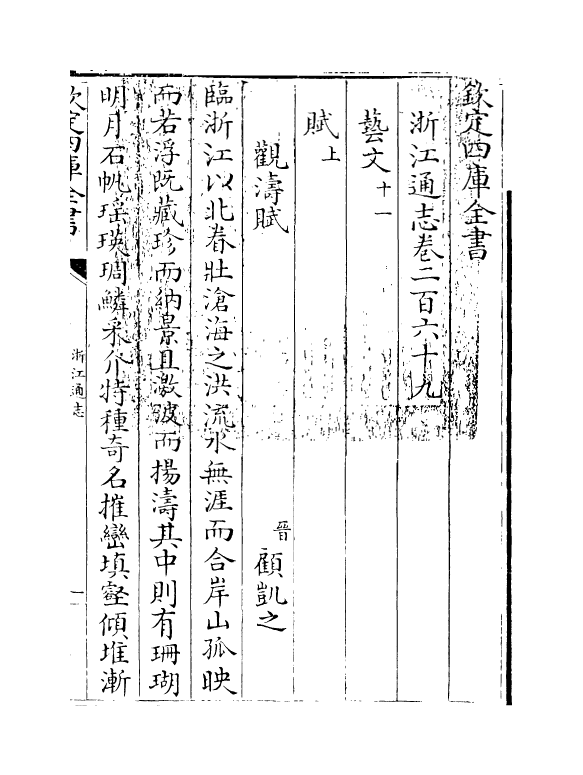 欽定四庫全書
浙江通志卷二百六十九
藝文十一
賦上
觀濤賦 晉顧凱之
臨浙江以北眷壯滄海之洪流水無涯而合岸山孤映
而若浮既藏珍而納景且激波而揚濤其中則有珊瑚
明月石帆瑶瑛琱鱗采介特種奇名摧巒填壑傾堆漸
欽定四庫全書
浙江通志
一